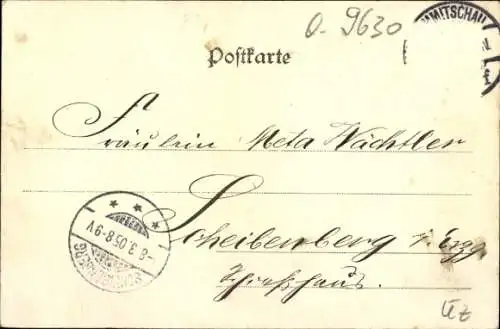 O-9630
MMITSCHAU
Postkarte
Fräulein Meta Wächtler
Scheibenberg i. Erzg.
Schießhaus.
-8.3.05.8-9V